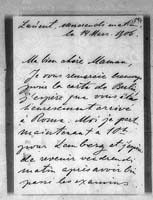 le 14 Mars 1906.
Ma bien chère Maman,
Je vous remercie beaucoup
pour la carte de Berlin
J'espère que vous êtes
heureusement arrivée
à Rome. Moi je pars
maintenant à 10h
pour Lemberg et j'espère
de revenir vendredi
matin après avoir
passé les examens